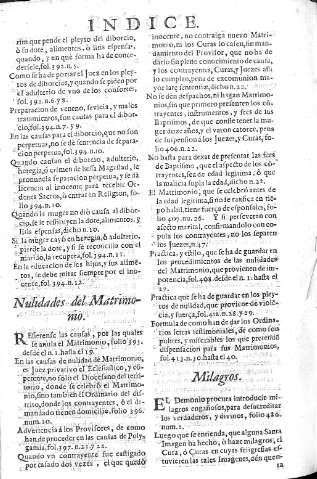 INDICE.
rim que pende el pleyto del diborcio,
ò sin dote, alimentos, ò litis espensas,
quando, y en què forma ha de conce-
derse, fol.392.n.5.
Como se ha de portar el Juez en los pley-
tos de diborcio, y quando se piden por
el adulterio de vno de los consortes,
fol.393. n.6.7 8.
Preparacion de veneno, sevicia, y malos
tratamientos, son causas para el divor-
cio, fol.394.n.7.9.
En las causas para el diborcio, que no son
perpetuas, no se dè sentencia de separa-
cion perpetua, fol.394. n.10.
Quando causan el diborcio, adulterio,
heregia, ò crimen de lesa Magestad, le
pronuncia separacion perpetua, y se dà
licencia al inocente para recebir Or-
denes Sacros, ò entrar en Religion, fol-
io 394.n.10.
Quando la muger no diò causa al diborcio,
se le restituyen la dote, alimentos, y
litis espensas, dicho n.10.
Si la muger cayò en heregia, ò adulterio,
pierde la dote, y si se reconcilia con el
marido, la recupera, fol.394. n.11.
En la educacion de los hijos, y sus alimen-
tos, se debe mirar siempre por el ino-
cente, fol.394. n.12.
Nulidades del Matrimo-
nio.
REfierense las causas, por las quales
se anula el Matrimonio, folio 395.
desde el n.1. hasta el 19.
En las causas de nulidad de Matrimonio,
es Juez privativo el Eclesiastico, y co-
petente, no solo el Diocesano del terri-
torio, donde se celebrò el Matrimo-
nio, sino tambien el Ordinario del dis-
trito, donde los contrayentes, ò el de-
mandado tienen domicilio, folio 396.
num.10.
Advertencia à los Provisores, de como
han de proceder en las causas de Poly-
gamia, fol.397. n.21 y 22.
Quando vn contrayente fue castigado
por casado dos vezes, el que quedò
inocente, no contraiga nuevo Matri-
monio, ni los Curas lo casen, sin man-
damiento del Provisor, que no ha de
dàrlo sin pleno conocimiento de causa,
y los contrayentes, Curas, y Juezes assi
lo cumplan, pena de excomunion ma-
yor latæ sententiæ, dicho n.22.
No se den despachos, ni hagan Matrimo-
nios, sin que primero presenten los cõ-
trayentes, instrumentos, y fees de sus
Baptismos, de que conste tener la mu-
ger doze años, y el varon catorce, pena
de suspension à los Juezes, y Curas, fo-
lio 406.n.23.
No basta para dexar de presentar las fees
de Baptismo, que el aspecto de los con-
trayentes, sea de edad legitima, ò que
la malicia supla la edad, dicho n.23.
El Matrimonio, que se celebrò antes de
la edad legitima, si no se ratifica en tie-
po habil, tiene fuerça de esponsales, fo-
lio 407. nu.26. Y si perseveran con
afecto marital, confirmandolo con co-
pula los contrayentes, no los separen
los Juezes, n.47.
Practica, y estilo, que se ha de guardar en
los procedimientos de las nulidades
del Matrimonio, que provienen de im-
potencia, fol.408. desde el n.1. hasta el
n.27.
Practica que se ha de guardar en los pley-
tos de nulidad, que proviene de violen-
cia, y fuerça, fol.412.n.28.y 29.
Formula de como han de dar los Ordina-
rios letras testimoniales, de como son
pobres, y miserables los que pretenden
dispensacion para sus Matrimonios,
fol.413.n.30.hasta el 40.
Milagros.
EL Demonio procura introducir mi-
lagros engañosos, para desacreditar
los verdaderos, y divinos, folio 420.
num.1.
Luego que se entienda, que alguna Santa
Imagen ha hecho, ò haze milagros, el
Cura, ò Curas en cuyas feligresias es-
tuvieren las tales Imagenes, dèn quen-
ta